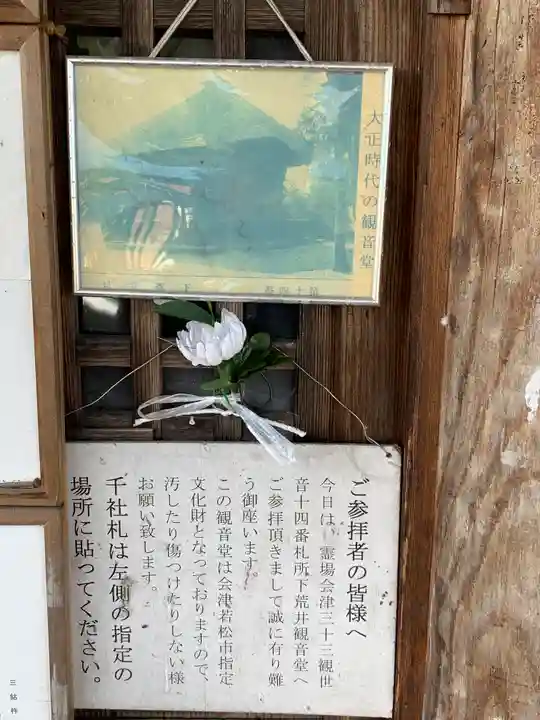 大正時代の観音堂
ご参拝者の皆様へ
今日は、霊場会津三十三観世
音十四番札所下荒井観音堂へ
ご参拝頂きまして誠に有り難
う御座います。
この観音堂は会津若松市指定
文化財となっておりますので、
汚したり傷つけたりしない様
お願い致します。
千社札は左側の指定の
場所に貼ってください。
三鈷杵